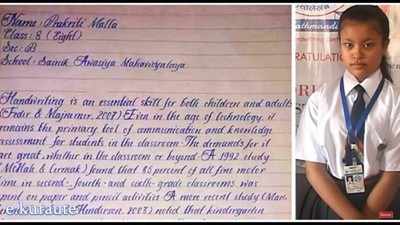 Name: Prakriti Malla
Class: 8 (Eight)
Sec: B
School: Sainik Awasiya Mahavidyalaya
Handwriting is an essential skill for both children and adults
(Feder & Majnemer, 2007) Even in the age of technology, it
remains the primary tool of communication and knowledge
assessment for students in the classroom. The demands for it
are great, whether in the classroom or beyond A 1992 study
(McHale & Cermak) found that 85 percent of all fine motor
time in second- fourth- and sixth-grade classrooms was
spent on paper and pencil activities A more recent study (Marr,
Henderson, 2003) noted that kindergarten
e.kuraute
athmandu
RATULAT